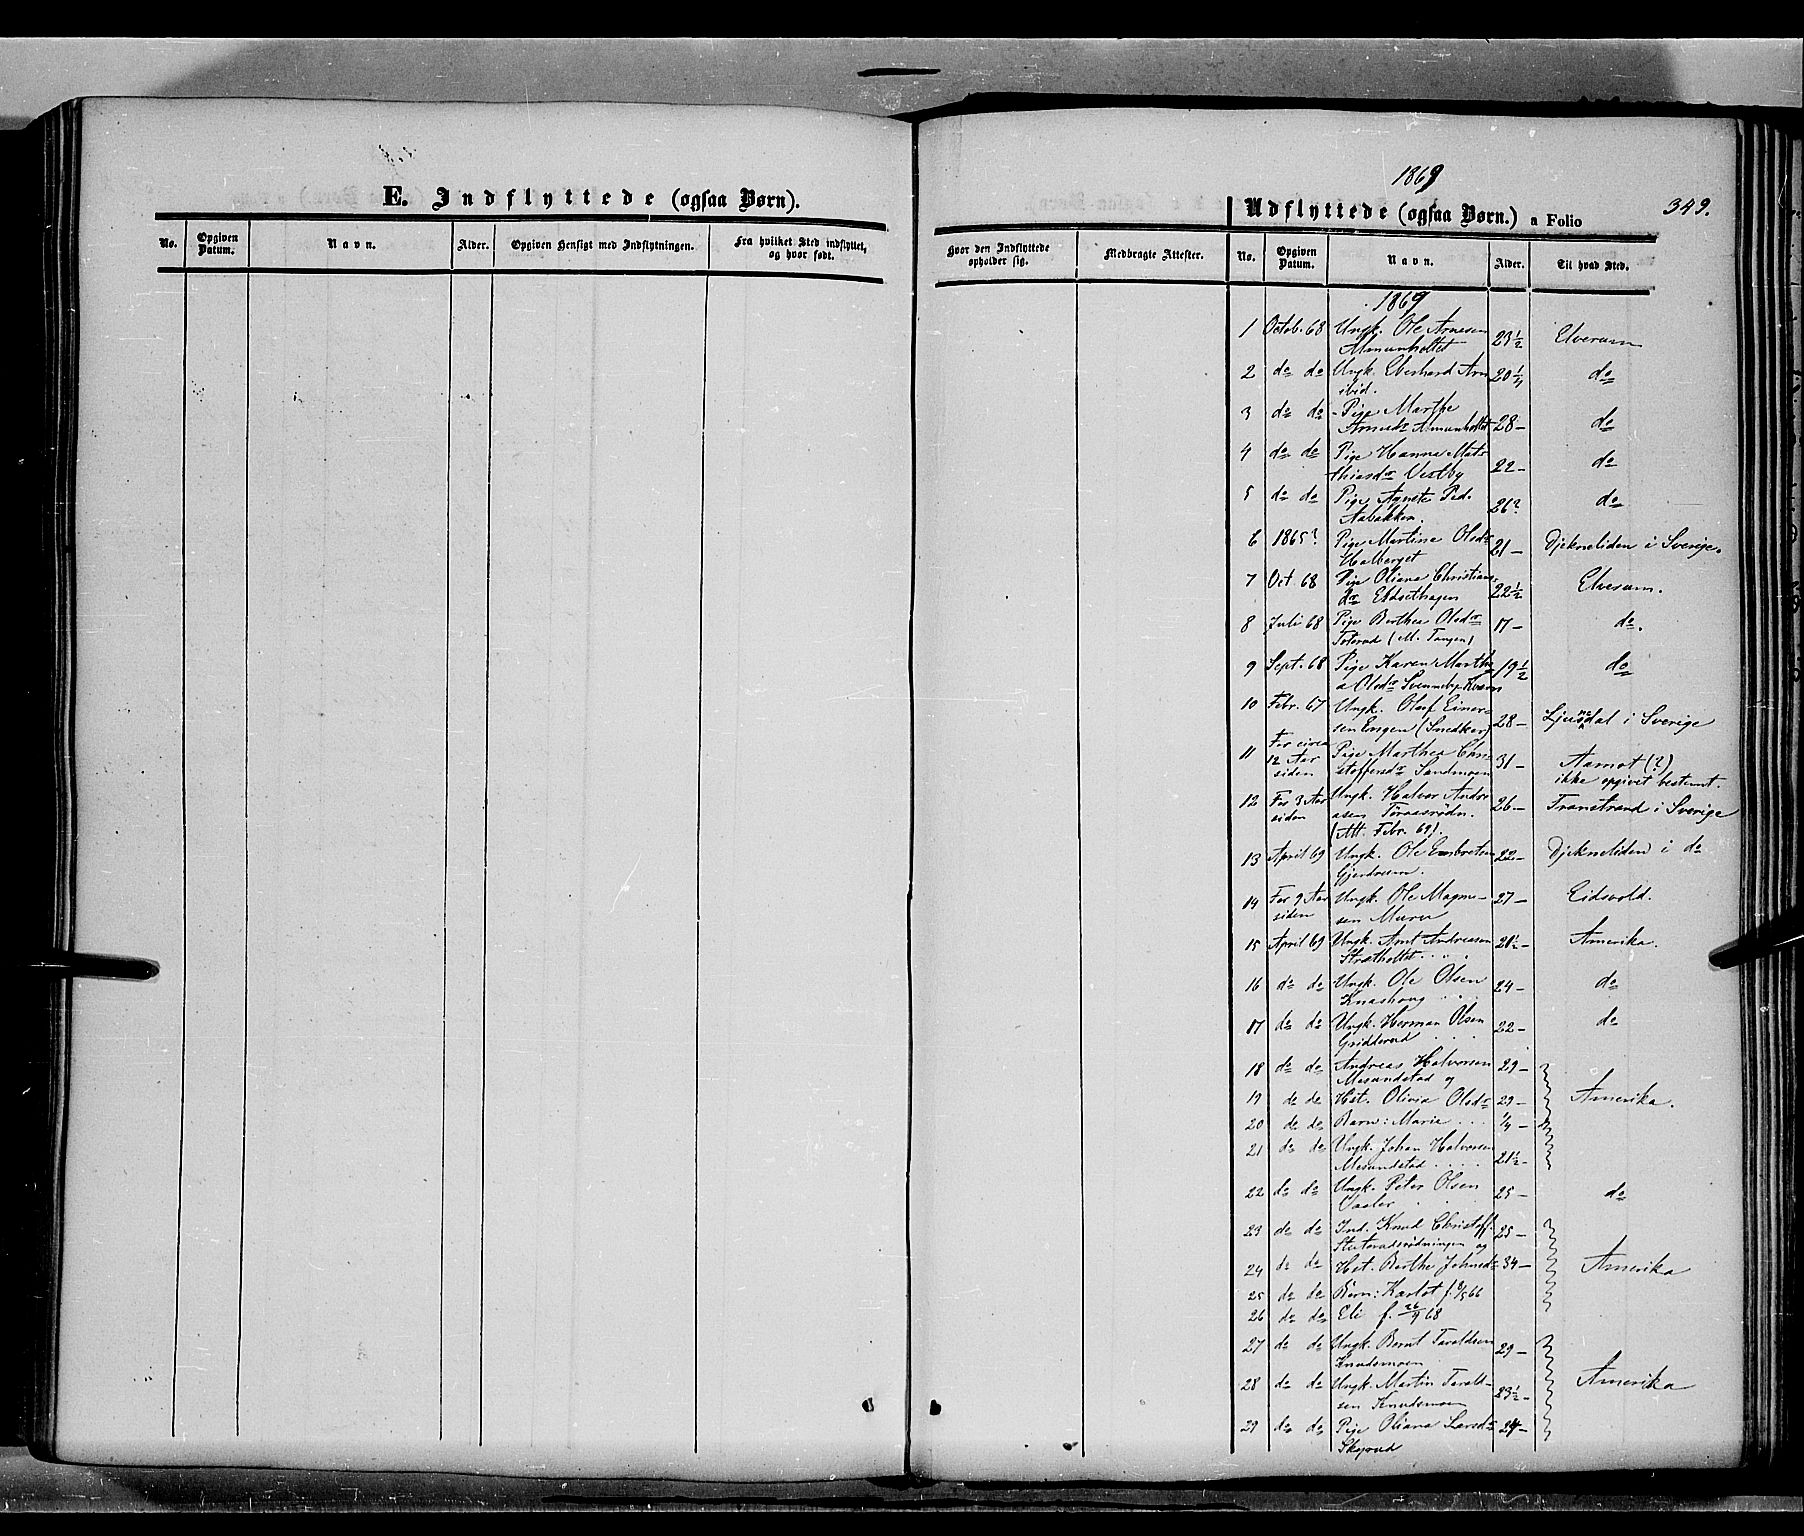 1869
349.
E. Indflyttede (ogsaa Børn).
Udflyttede (ogsaa Børn.) a Folio
No. Opgiven Datum. Navn. Alder. Opgiven Hensigt med Indflytningen. Fra hvilket Sted indflyttet, og hvor født.
Hvor den Indflyttede opholder sig. Medbragte Attester. No. Opgiven Datum. Navn. Alder. Til hvad Sted.
1869
1 Octob. 68 Ungk. Ole Arnesen 23 1/2 Elverum
Almunholtet
2 do do Ungk. Eberhard Arn 20 1/4 do
ibid.
3 do do Pige Marthe 28 - do
Arnesdr Almunholtet
4 do do Pige Hanna Mat- 22 - do
thiasdr Vestby
5 do do Pige Agnete Ped. 26? do
Aabakken.
6 1865? Pige Martine Olsdr 21 - Djekneliden i Sverige.
Halberget
7 Oct 68 Pige Oliana Christians- 22 1/2 Elverum.
dr Eldsethagen
8 Juli 68 Pige Berthea Olsdr 17 - do.
(M. Tangen)
9 Sept. 68 Pige Karen Marth- 19 1/2 do
a Olsdr Svenneby Kværn
10 Febr. 67 Ungk. Oluf Einer- 28 - Ljusnedal i Sverige
sen Engen (Snedker)
11 For circa Pige Marthea Chri- 31 - Aamot (?)
12 Aar stoffersdr Sandmoen ikke opgivet bestemt.
siden
12 For 3 Aar Ungk. Halvor Andre- 26 - Transtrand i Sverige
siden asen
(Att. Febr. 69).
13 April 69 Ungk. Ole Embretsen 22 - Djekneliden i do
Gjerdrum.
14 For 9 Aar Ungk. Ole Magne- 27 - Eidsvold.
siden sen
15 April 69 Ungk. Arnt Andreasen 21 1/2 - Amerika.
Strætholtet . . . .
16 do do Ungk. Ole Olsen 24 - do
Knashoug . . .
17 do do Ungk. Herman Olsen 22 - do
. . .
18 do do Andreas Halvorsen 29 -
Mosandstad og
19 do do Hst. Olivia Olsdr 29 - Amerika.
20 do do Barn: Maria . . . 1/4 -
21 do do Ungk. Johan Halvorsen 21 1/2 -
Mosandstad . . . .
22 do do Ungk. Peter Olsen 25 - do
Vaaler .
23 do do Ind. Knud Christoff. 25 -
og
24 do do Hst. Berthe Johnsdr 34 - Amerika
25 do do Børn: Karlot f. 9/5 66
26 do do Eli f. 26/9 68
27 do do Ungk. Bernt Taraldsen 29 -
Knudsmoen
28 do do Ungk. Martin Tarald- 23 1/2 - Amerika
sen Knudsmoen
29 do do Pige Oliana Larsdr 24 -
Skyrud